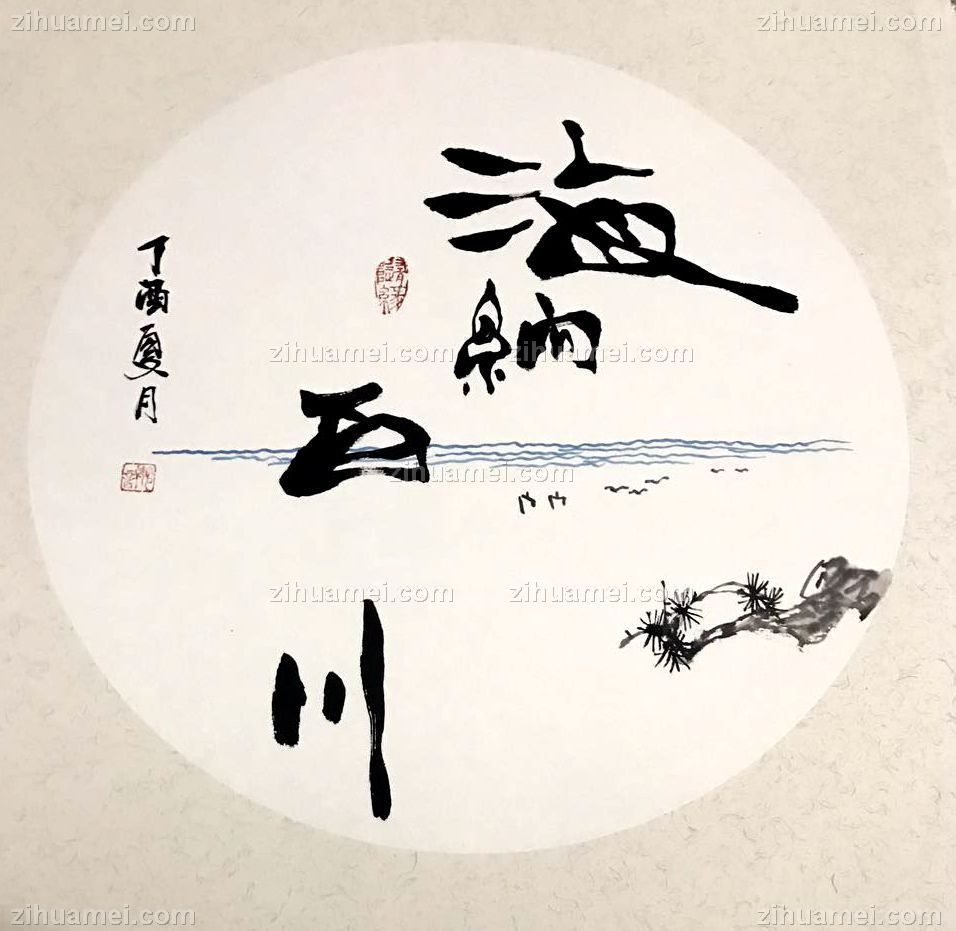 zihuamei.com zihuamei.com
海納
百川
丁酉夏月
zihuamei.com zihuamei.com
zihuamei.com zihuamei.com
zihuamei.com zihuamei.com
zihuamei.com zihuamei.com